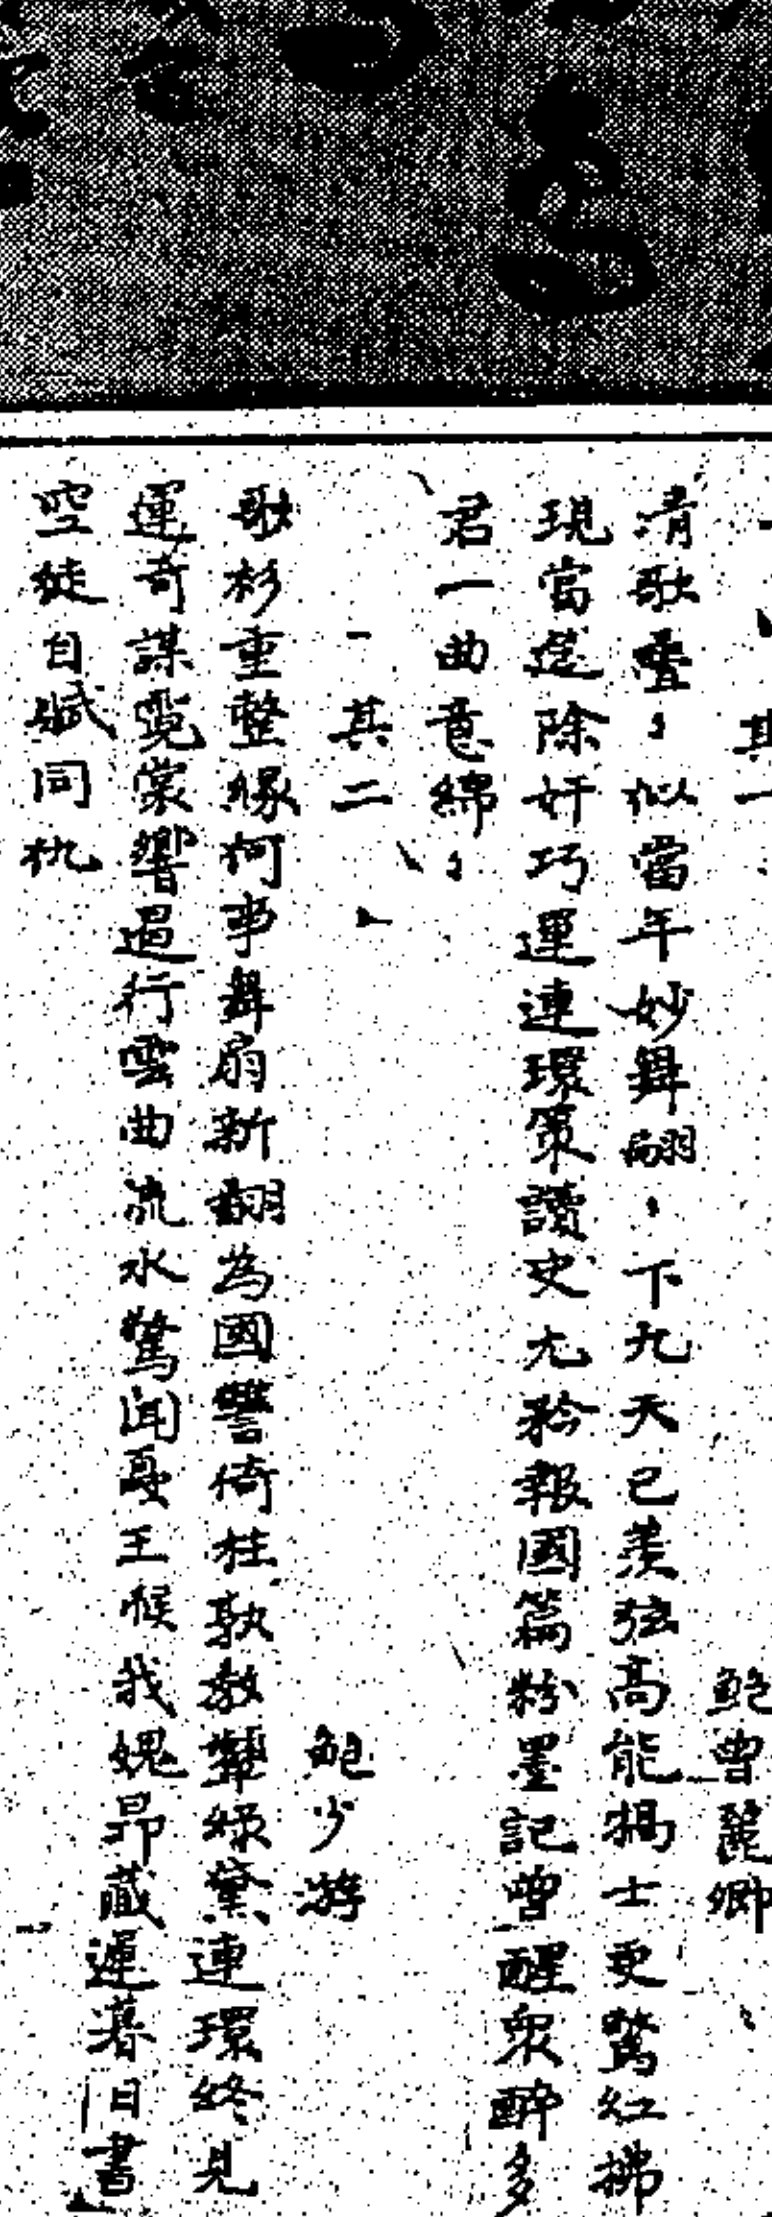 其一
鮑曾麗卿
清歌疊〻似當年妙舞翩〻下九天已羨弦高能犒士更驚紅拂
現當筵除奸巧運連環策讀史尤矜報國篇粉墨記曾醒眾醉多
君一曲意綿〻
其二
鮑少游
歌衫重整緣何事舞扇新翻為國讐倚柱孰教顰綠黛連環終見
運奇謀霓裳響遏行雲曲流水驚聞憂王候我媿昂藏遲暮日書
空徒自賦同仇